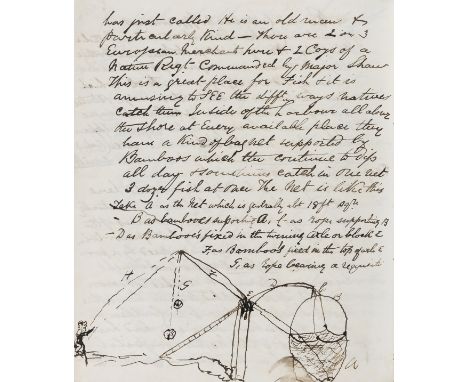 has just called He is an old man &
particularly kind — There are 2 or 3
European Merchants here & 2 Coys of a
Native Regt Commanded by Major Shaw
This is a great place for Fish & it is
amusing to SEE the difft ways natives
catch them Inside of the harbour all along
the shore at Every available place they
have a Kind of bag net supported by
Bamboos which they continue to dip
all day & sometimes catch in one net
3 dozen fish at once The Net is like this
Take A as the Net which is generally abt 18ft sqre
- B as bamboos support A, C as rope supporting B
- D as Bamboos fixed in the turning Axle or block E
F, as Bamboos fixed in the top of
G, as rope bearing a
H G F E D C B
A